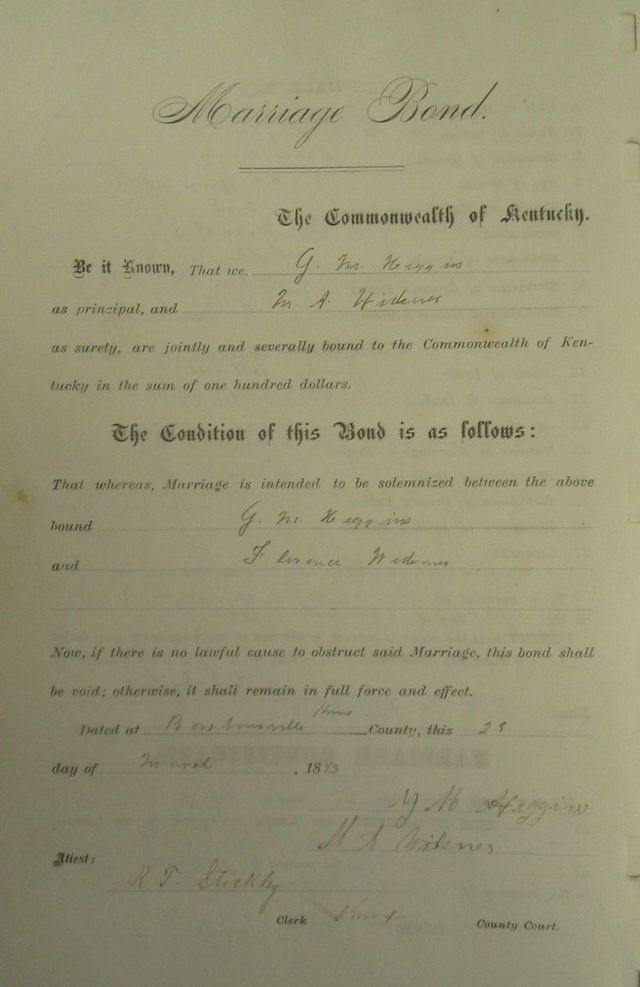 Marriage Bond.
The Commonwealth of Kentucky.
Be it Known, That we, G. M. Higgins
as principal, and M. A. Widener
as surety, are jointly and severally bound to the Commonwealth of Ken-
tucky in the sum of one hundred dollars.
The Condition of this Bond is as follows:
That whereas, Marriage is intended to be solemnized between the above
bound G. M. Higgins
and Florence Widener
Now, if there is no lawful cause to obstruct said Marriage, this bond shall
be void; otherwise, it shall remain in full force and effect.
Knox
Dated at Barbourville County, this 28
day of March, 18
G M Higgins
M A Widener
Attest:
R T. Stickly
Clerk Knox County Court.